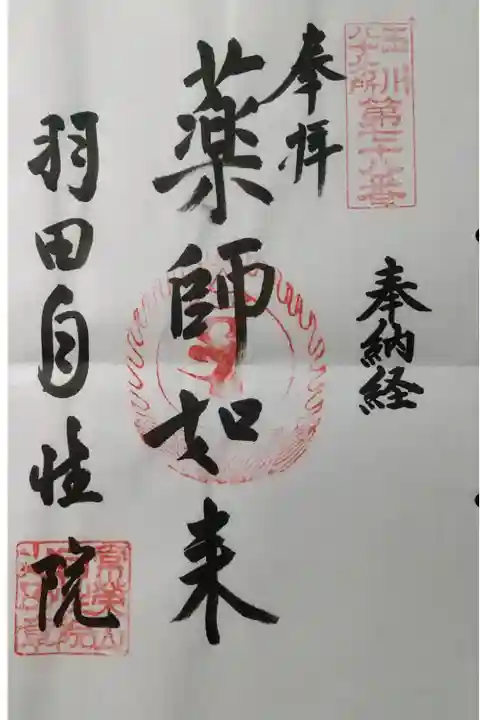 玉川
八十八所
第七十八番
奉納経
奉拝
薬師如来
羽田自性院